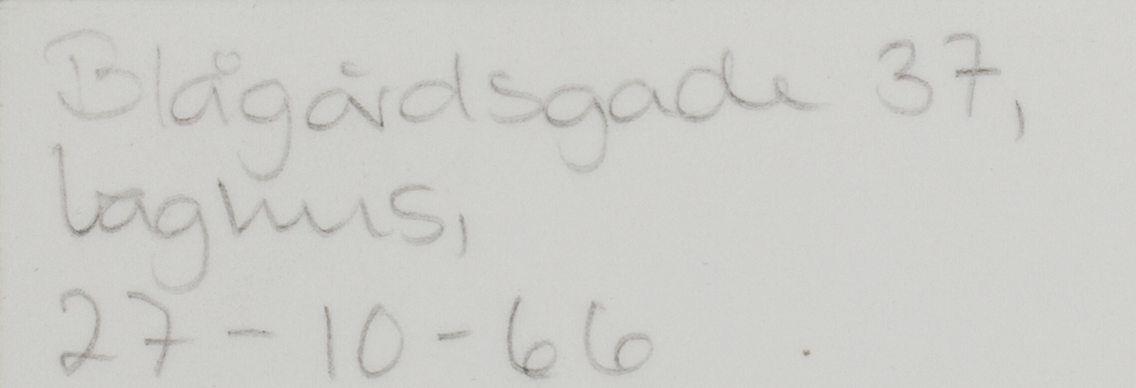 Blågårdsgade 37,
baghus,
27-10-66